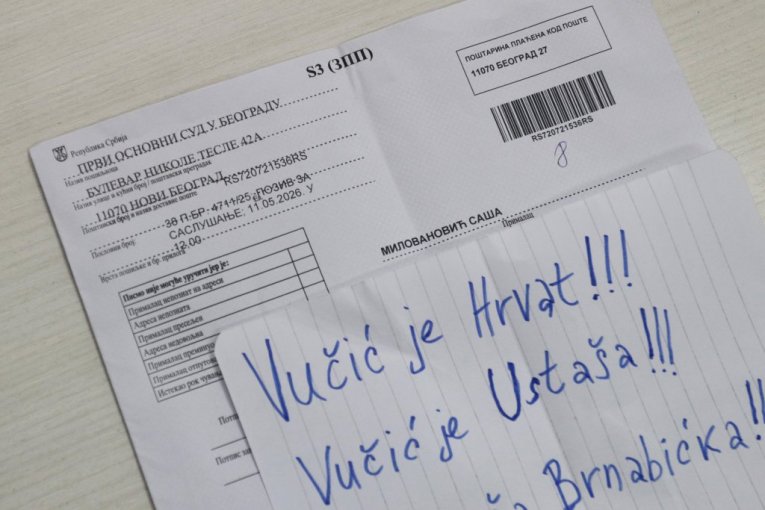 S3 (ЗПП)
ПОШТАРИНА ПЛАЋЕНА КОД ПОШТЕ
11070 БЕОГРАД 27
RS720721536RS
8
Република Србија
ПРВИ ОСНОВНИ СУД У БЕОГРАДУ
Назив пошиљаоца
БУЛЕВАР НИКОЛЕ ТЕСЛЕ 42А
Назив улице и кућни број / поштански преградак
11070 НОВИ БЕОГРАД
RS720721536RS
Поштански број и назив доставне поште
38 П-БР. 4711/25, ПОЗИВ ЗА
САСЛУШАЊЕ: 11.05.2026. У
12.00
Пословни број
Врста пошиљке и бр. прилога
МИЛОВАНОВИЋ САША
Прималац
Писмо није могуће уручити јер је:
Прималац непознат на адреси
Адреса непозната
Прималац пресељен
Адреса недовољна
Прималац преминуо
Прималац отпутовао
Истекао рок чувања
Потпис
Vučić je Hrvat!!!
Vučić je Ustaša!!!
Brnabićka!!